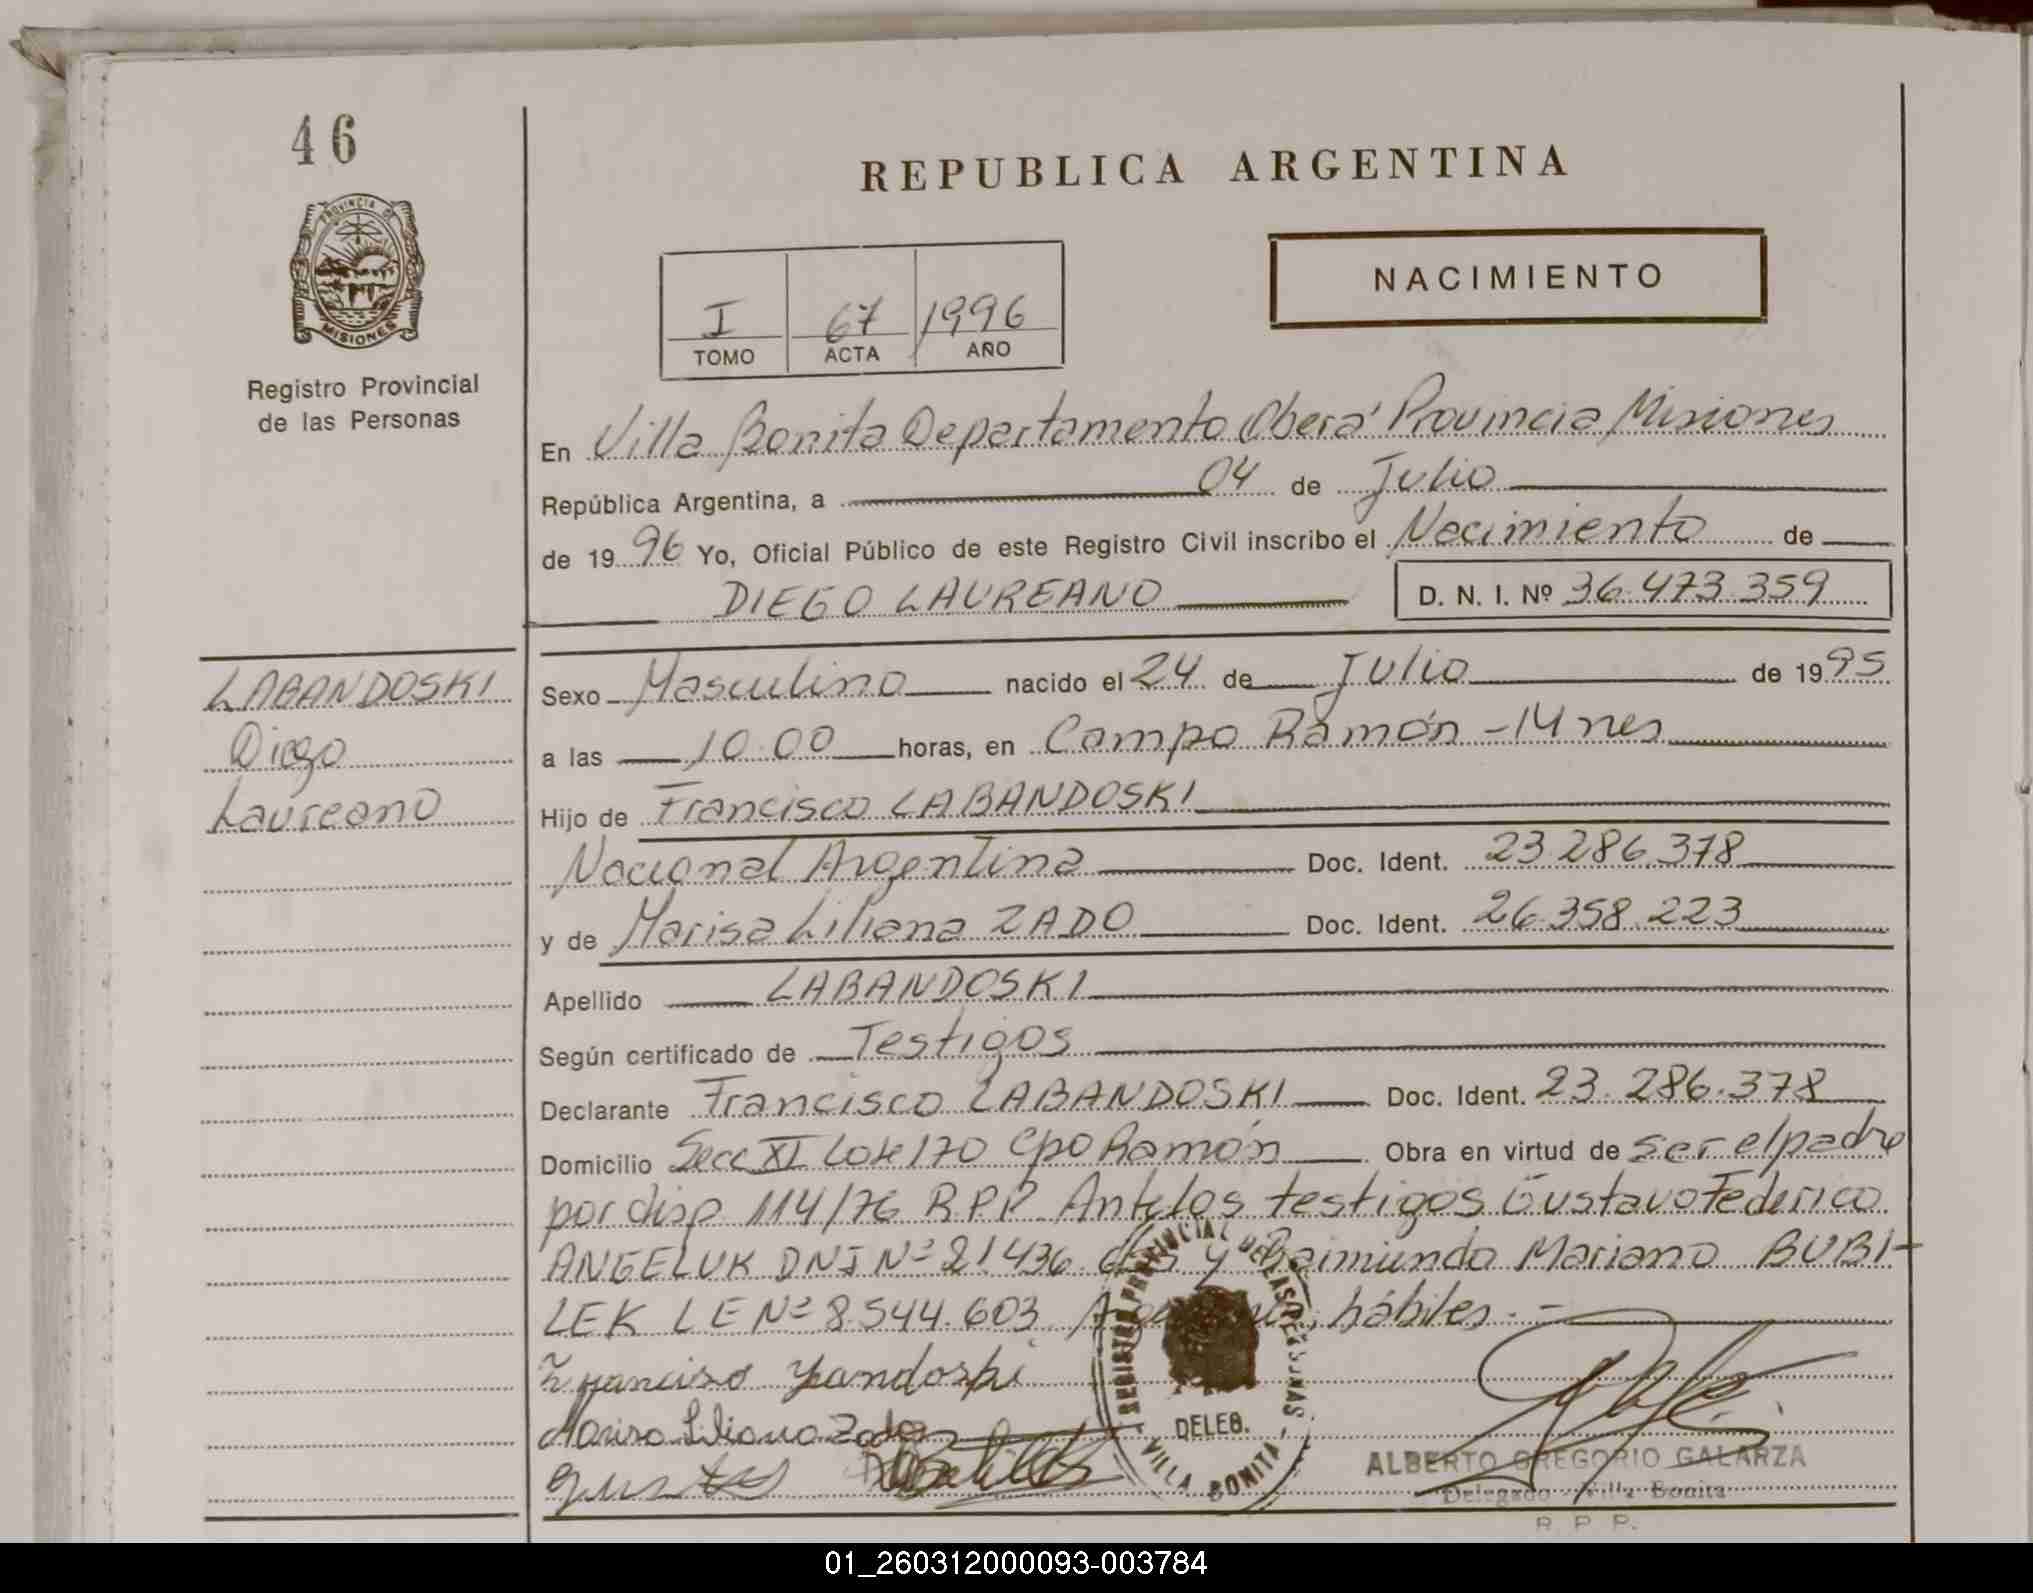 46
PROVINCIA DE
MISIONES
Registro Provincial
de las Personas
REPUBLICA ARGENTINA
NACIMIENTO
I 67 1996
TOMO ACTA AÑO
En Villa Bonita Departamento Oberá Provincia Misiones
República Argentina, a 04 de Julio
de 19 96 Yo, Oficial Público de este Registro Civil inscribo el Nacimiento de
DIEGO LAUREANO D. N. I. Nº 36.473.359
LABANDOSKI
Diego
Laureano
Sexo Masculino nacido el 24 de Julio de 19 95
a las 10.00 horas, en Campo Ramón - Mnes
Hijo de Francisco LABANDOSKI
Nacional Argentina Doc. Ident. 23.286.378
y de Marisa Liliana ZADO Doc. Ident. 26.358.223
Apellido LABANDOSKI
Según certificado de Testigos
Declarante Francisco LABANDOSKI Doc. Ident. 23.286.378
Domicilio Secc XI Lote 170 Cpo Ramón Obra en virtud de ser el padre
por disp 114/76 R.P.P. Ante los testigos Gustavo Federico
ANGELUK DNI Nº 21.436. y Raimundo Mariano BUBI-
LEK LE Nº 8.544.603 hábiles.-
REGISTRO PROVINCIAL DE LAS PERSONAS
DELEG.
VILLA BONITA
Marisa Liliana Zado
ALBERTO GREGORIO GALARZA
Delegado Villa Bonita
R. P. P.
01_260312000093-003784